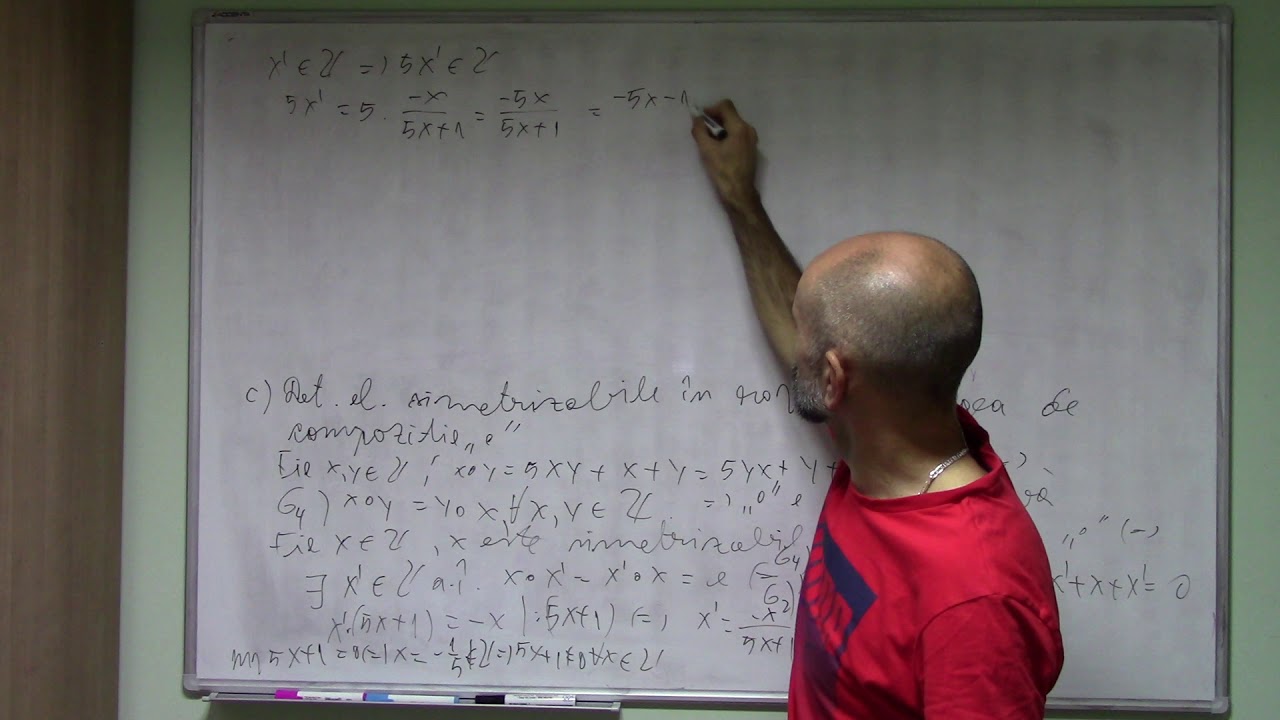 x' ∈ ℤ => 5x' ∈ ℤ
5x' = 5 · \frac{-x}{5x+1} = \frac{-5x}{5x+1} = -5x-1
c) Det. el. simetrizabile în de
compoziție „o"
Fie x,y ∈ ℤ ; xoy = 5xy + x + y = 5yx + y +
G₄) xoy = yox, ∀x, y ∈ ℤ => „o" e
Fie x ∈ ℤ, x este simetrizabil „o" (=)
∃ x' ∈ ℤ a.î. xox' = x'ox = e x'+x+x' = 0
x'·(5x+1) = -x |:(5x+1) (=) x' = \frac{-x}{5x+1}
5x+1 = 0 (=) x = -\frac{1}{5} ∉ ℤ => 5x+1 ≠ 0 ∀x ∈ ℤ